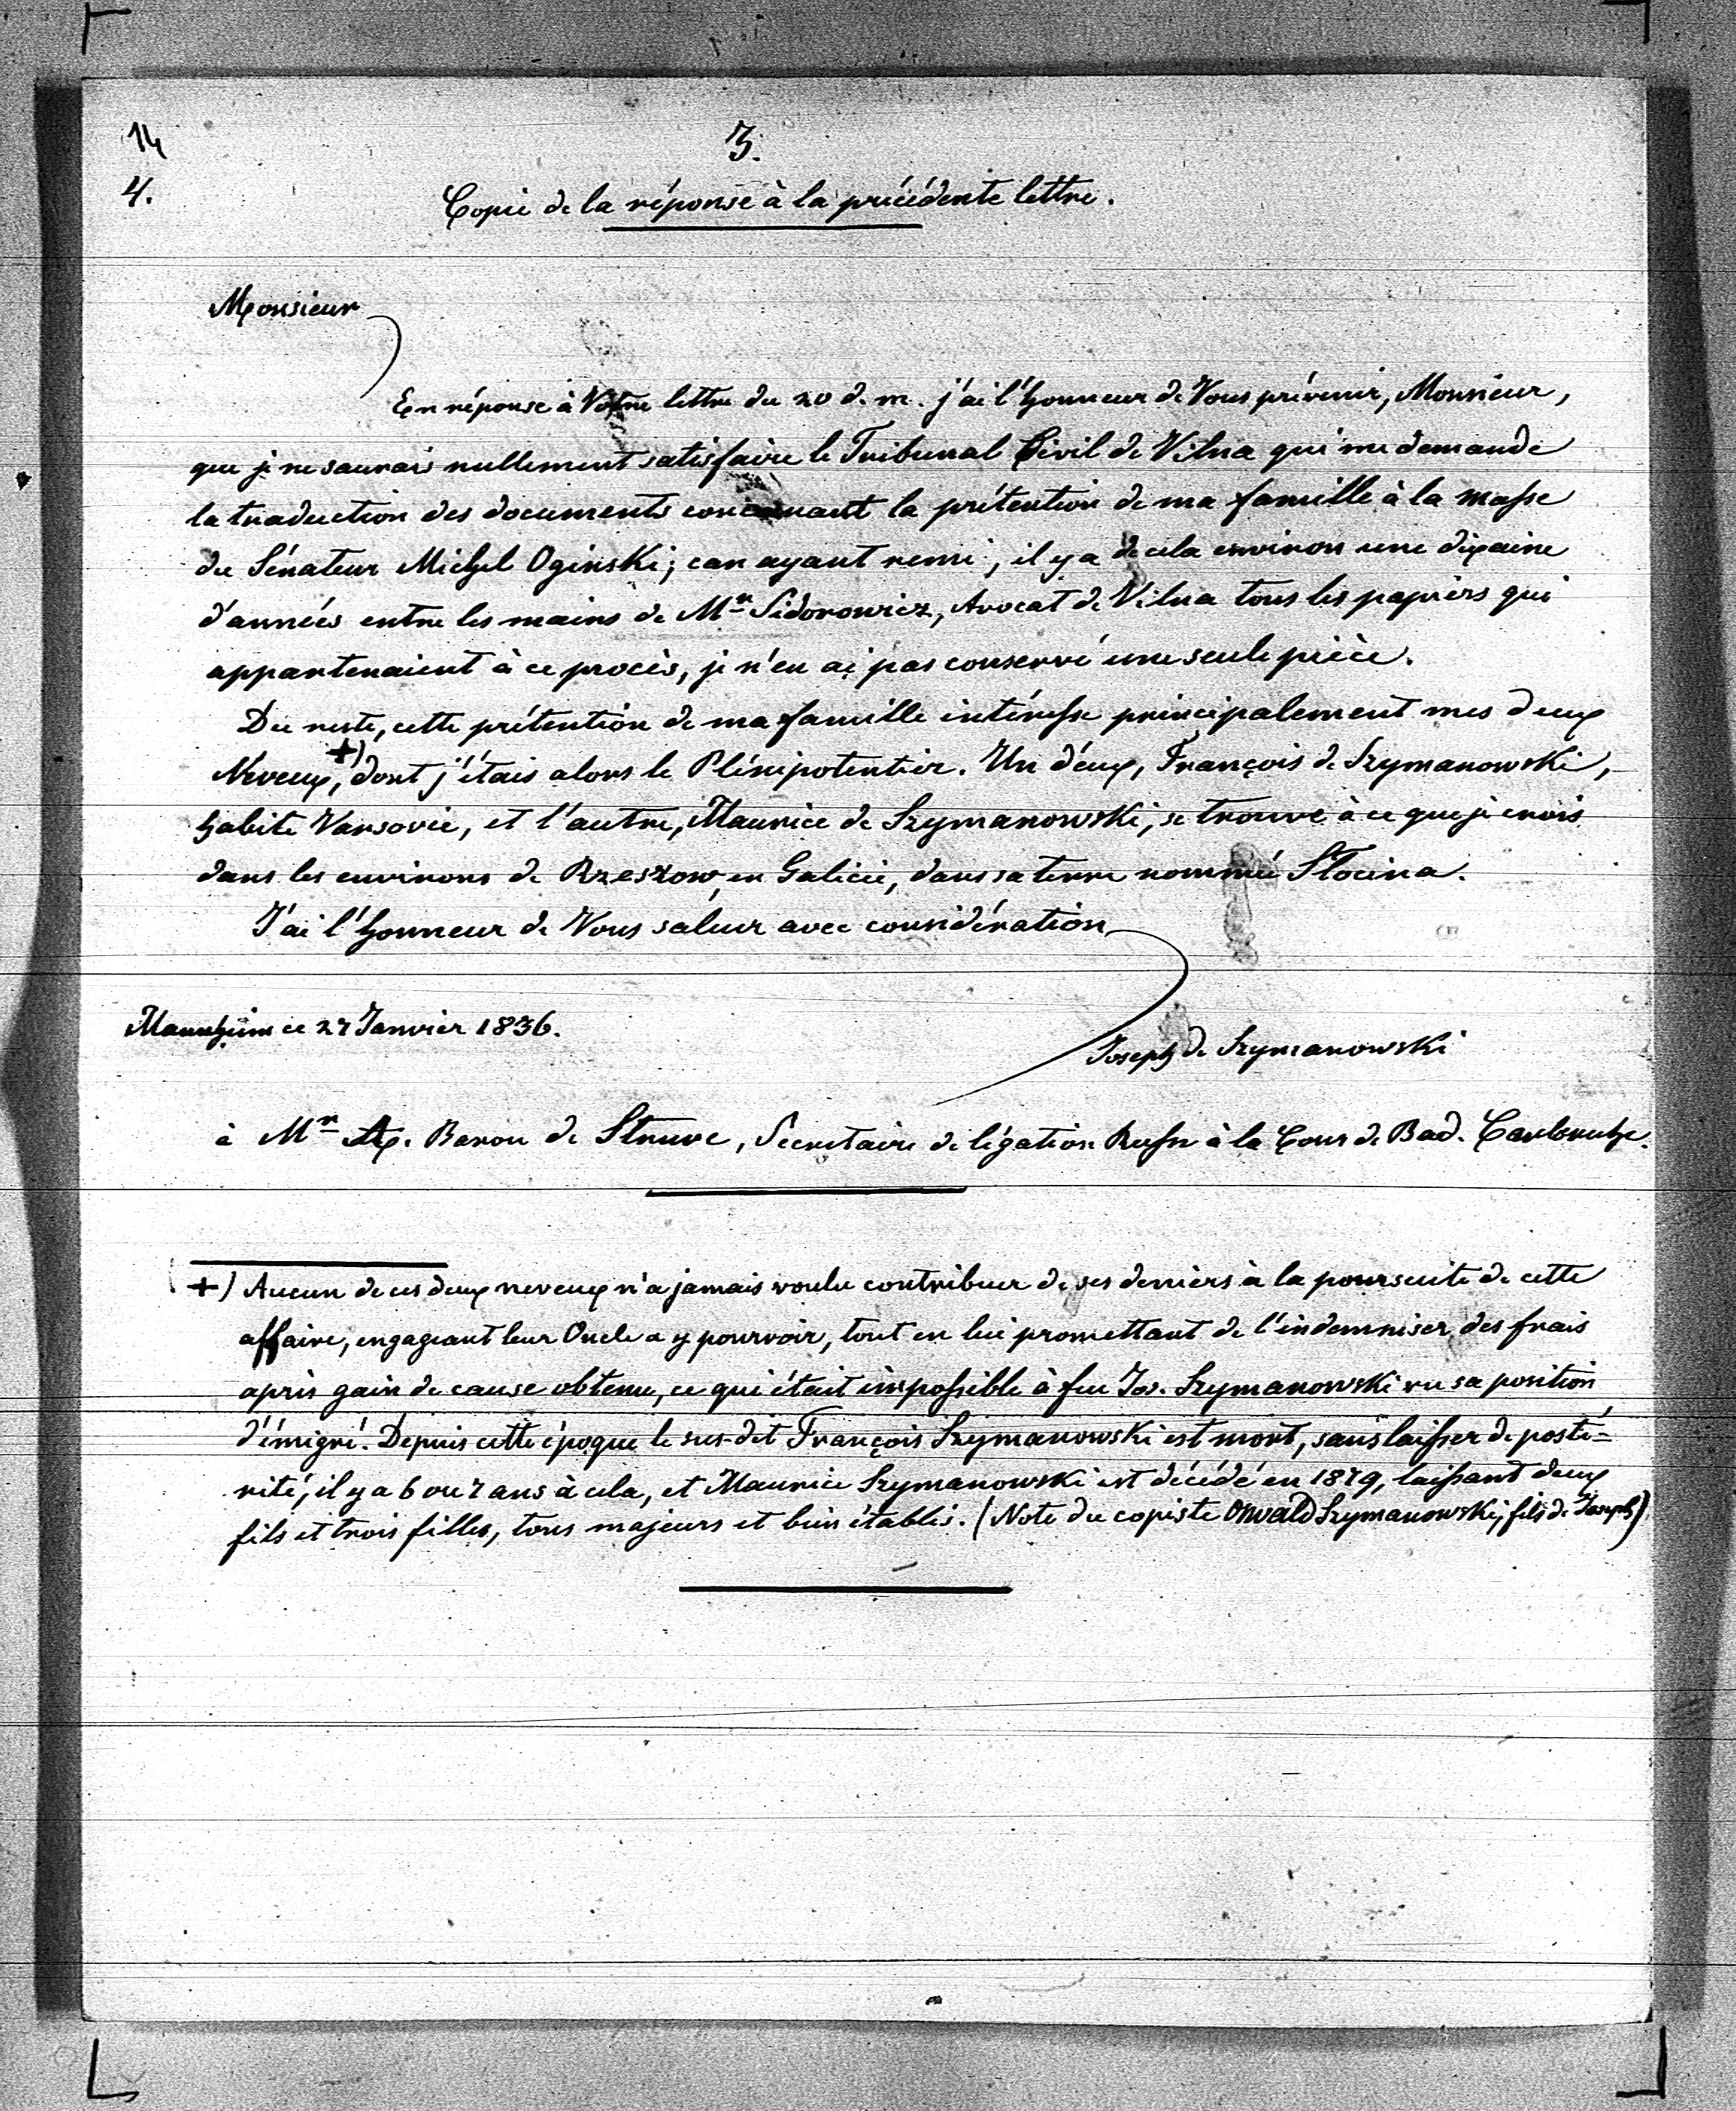 14
3.
4.
Copie de la réponse à la précédente lettre.
Monsieur
En réponse à Votre lettre du 20 d. m. j'ai l'honneur de Vous prévenir, Monsieur,
que je ne saurais nullement satisfaire le Tribunal Civil de Vilna qui me demande
la traduction des documents concernant la prétention de ma famille à la masse
du Sénateur Michel Oginski; car ayant remi, il y a de cela environ une dixaine
d'années entre les mains de Mr Sidorowicz, Avocat de Vilna tous les papiers qui
appartenaient à ce procès, je n'en ai pas conservé une seule pièce.
Du reste, cette prétention de ma famille intéresse principalement mes deux
Neveux, +) dont j'étais alors le Plénipotentier. Un d'eux, François de Szymanowski,
habite Varsovie, et l'autre, Maurice de Szymanowski, se trouve à ce que je crois
dans les environs de Rzeszow, en Galicie, dans sa terre nommée Słocina.
J'ai l'honneur de Vous saluer avec considération
Mannheim ce 27 Janvier 1836.
Joseph de Szymanowski
à Mr Baron de Struve, Secretaire de légation Russe à la Cour de Bad. Carlsruhe.
+) Aucun de ces deux neveux n'a jamais voulu contribuer de ses deniers à la poursuite de cette
affaire, engageant leur Oncle a y pourvoir, tout en lui promettant de l'indemniser des frais
après gain de cause obtenu, ce qui était impossible à feu Jos. Szymanowski vu sa position
d'émigré. Depuis cette époque le sus-dit François Szymanowski est mort, sans laisser de posté=
rité, il y a 6 ou 7 ans à cela, et Maurice Szymanowski est décédé en 1879, laissant deux
fils et trois filles, tous majeurs et bien établis. (Note du copiste Oswald Szymanowski, fils de Joseph)